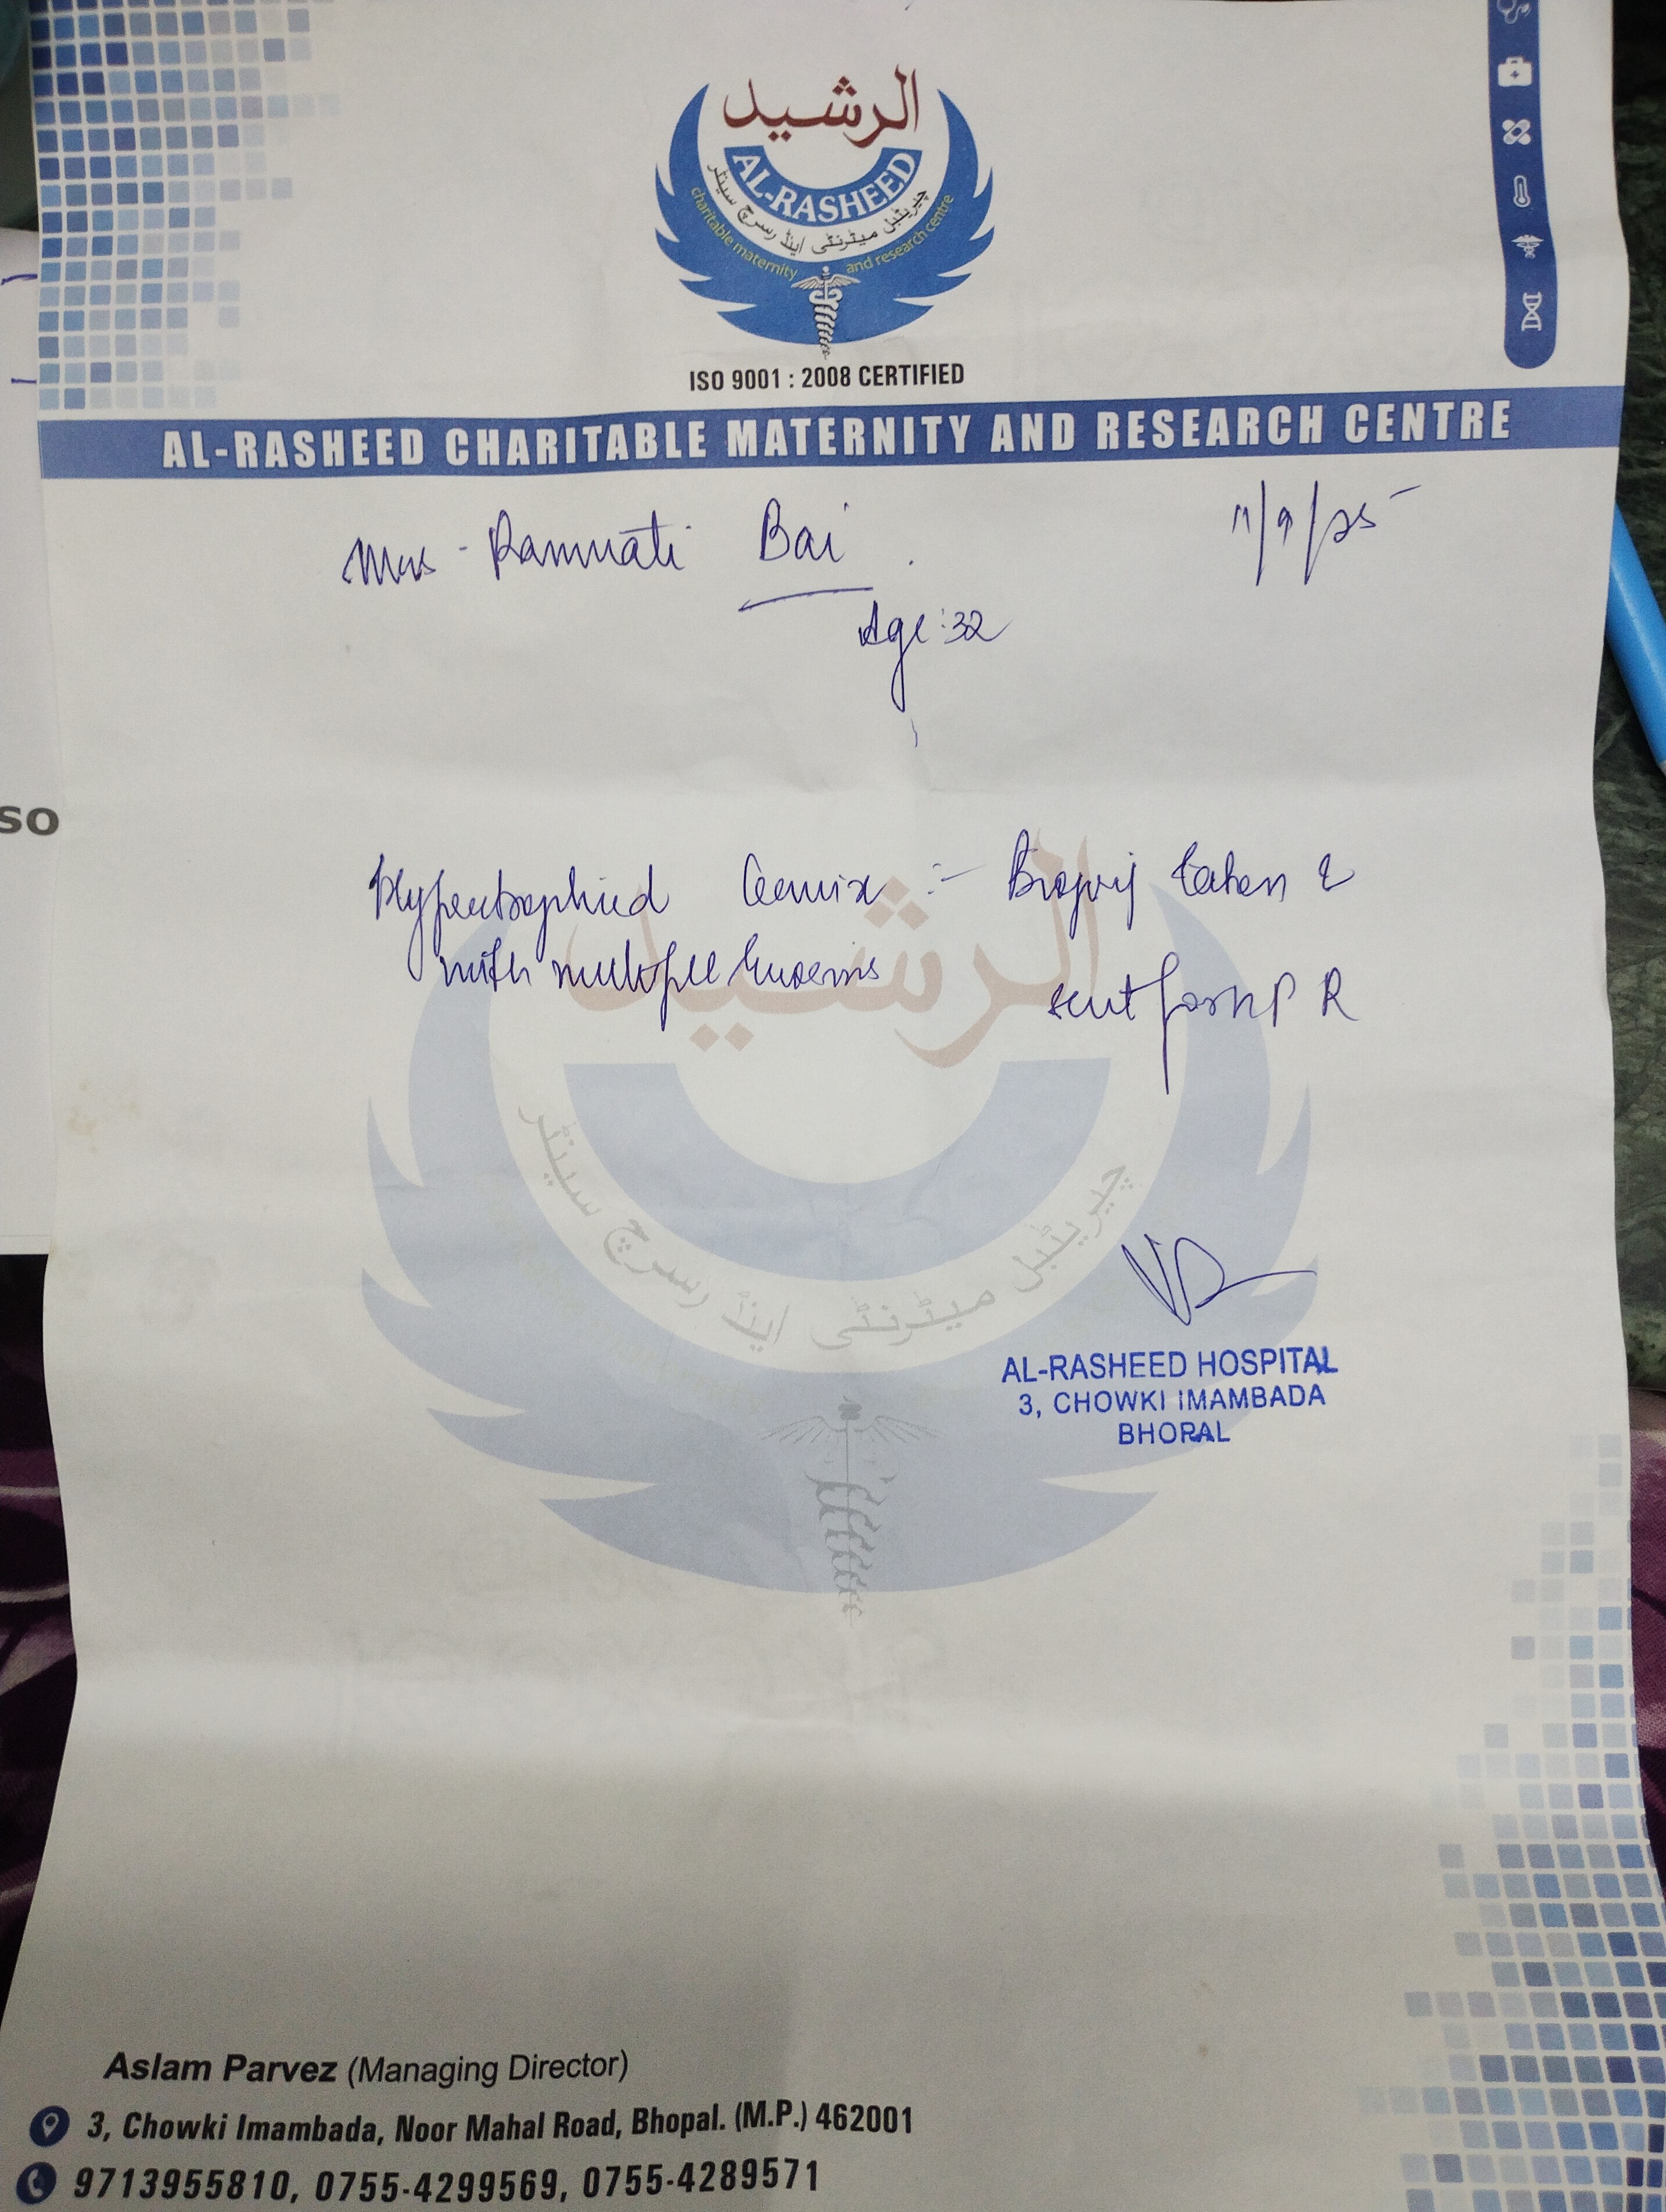 الرشيد
AL-RASHEED
چیریٹیبل میٹرنٹی اینڈ رسرچ سینٹر
charitable maternity and research centre
ISO 9001 : 2008 CERTIFIED
AL-RASHEED CHARITABLE MATERNITY AND RESEARCH CENTRE
Mrs - Ramnati Bai .
11/9/25
Age : 32
Hypertrophied Cervix :- Biopsy taken &
with multiple
sent for HPR
الرشيد
چیریٹیبل میٹرنٹی اینڈ رسرچ سینٹر
AL-RASHEED HOSPITAL
3, CHOWKI IMAMBADA
BHOPAL
so
Aslam Parvez (Managing Director)
3, Chowki Imambada, Noor Mahal Road, Bhopal. (M.P.) 462001
9713955810, 0755-4299569, 0755-4289571